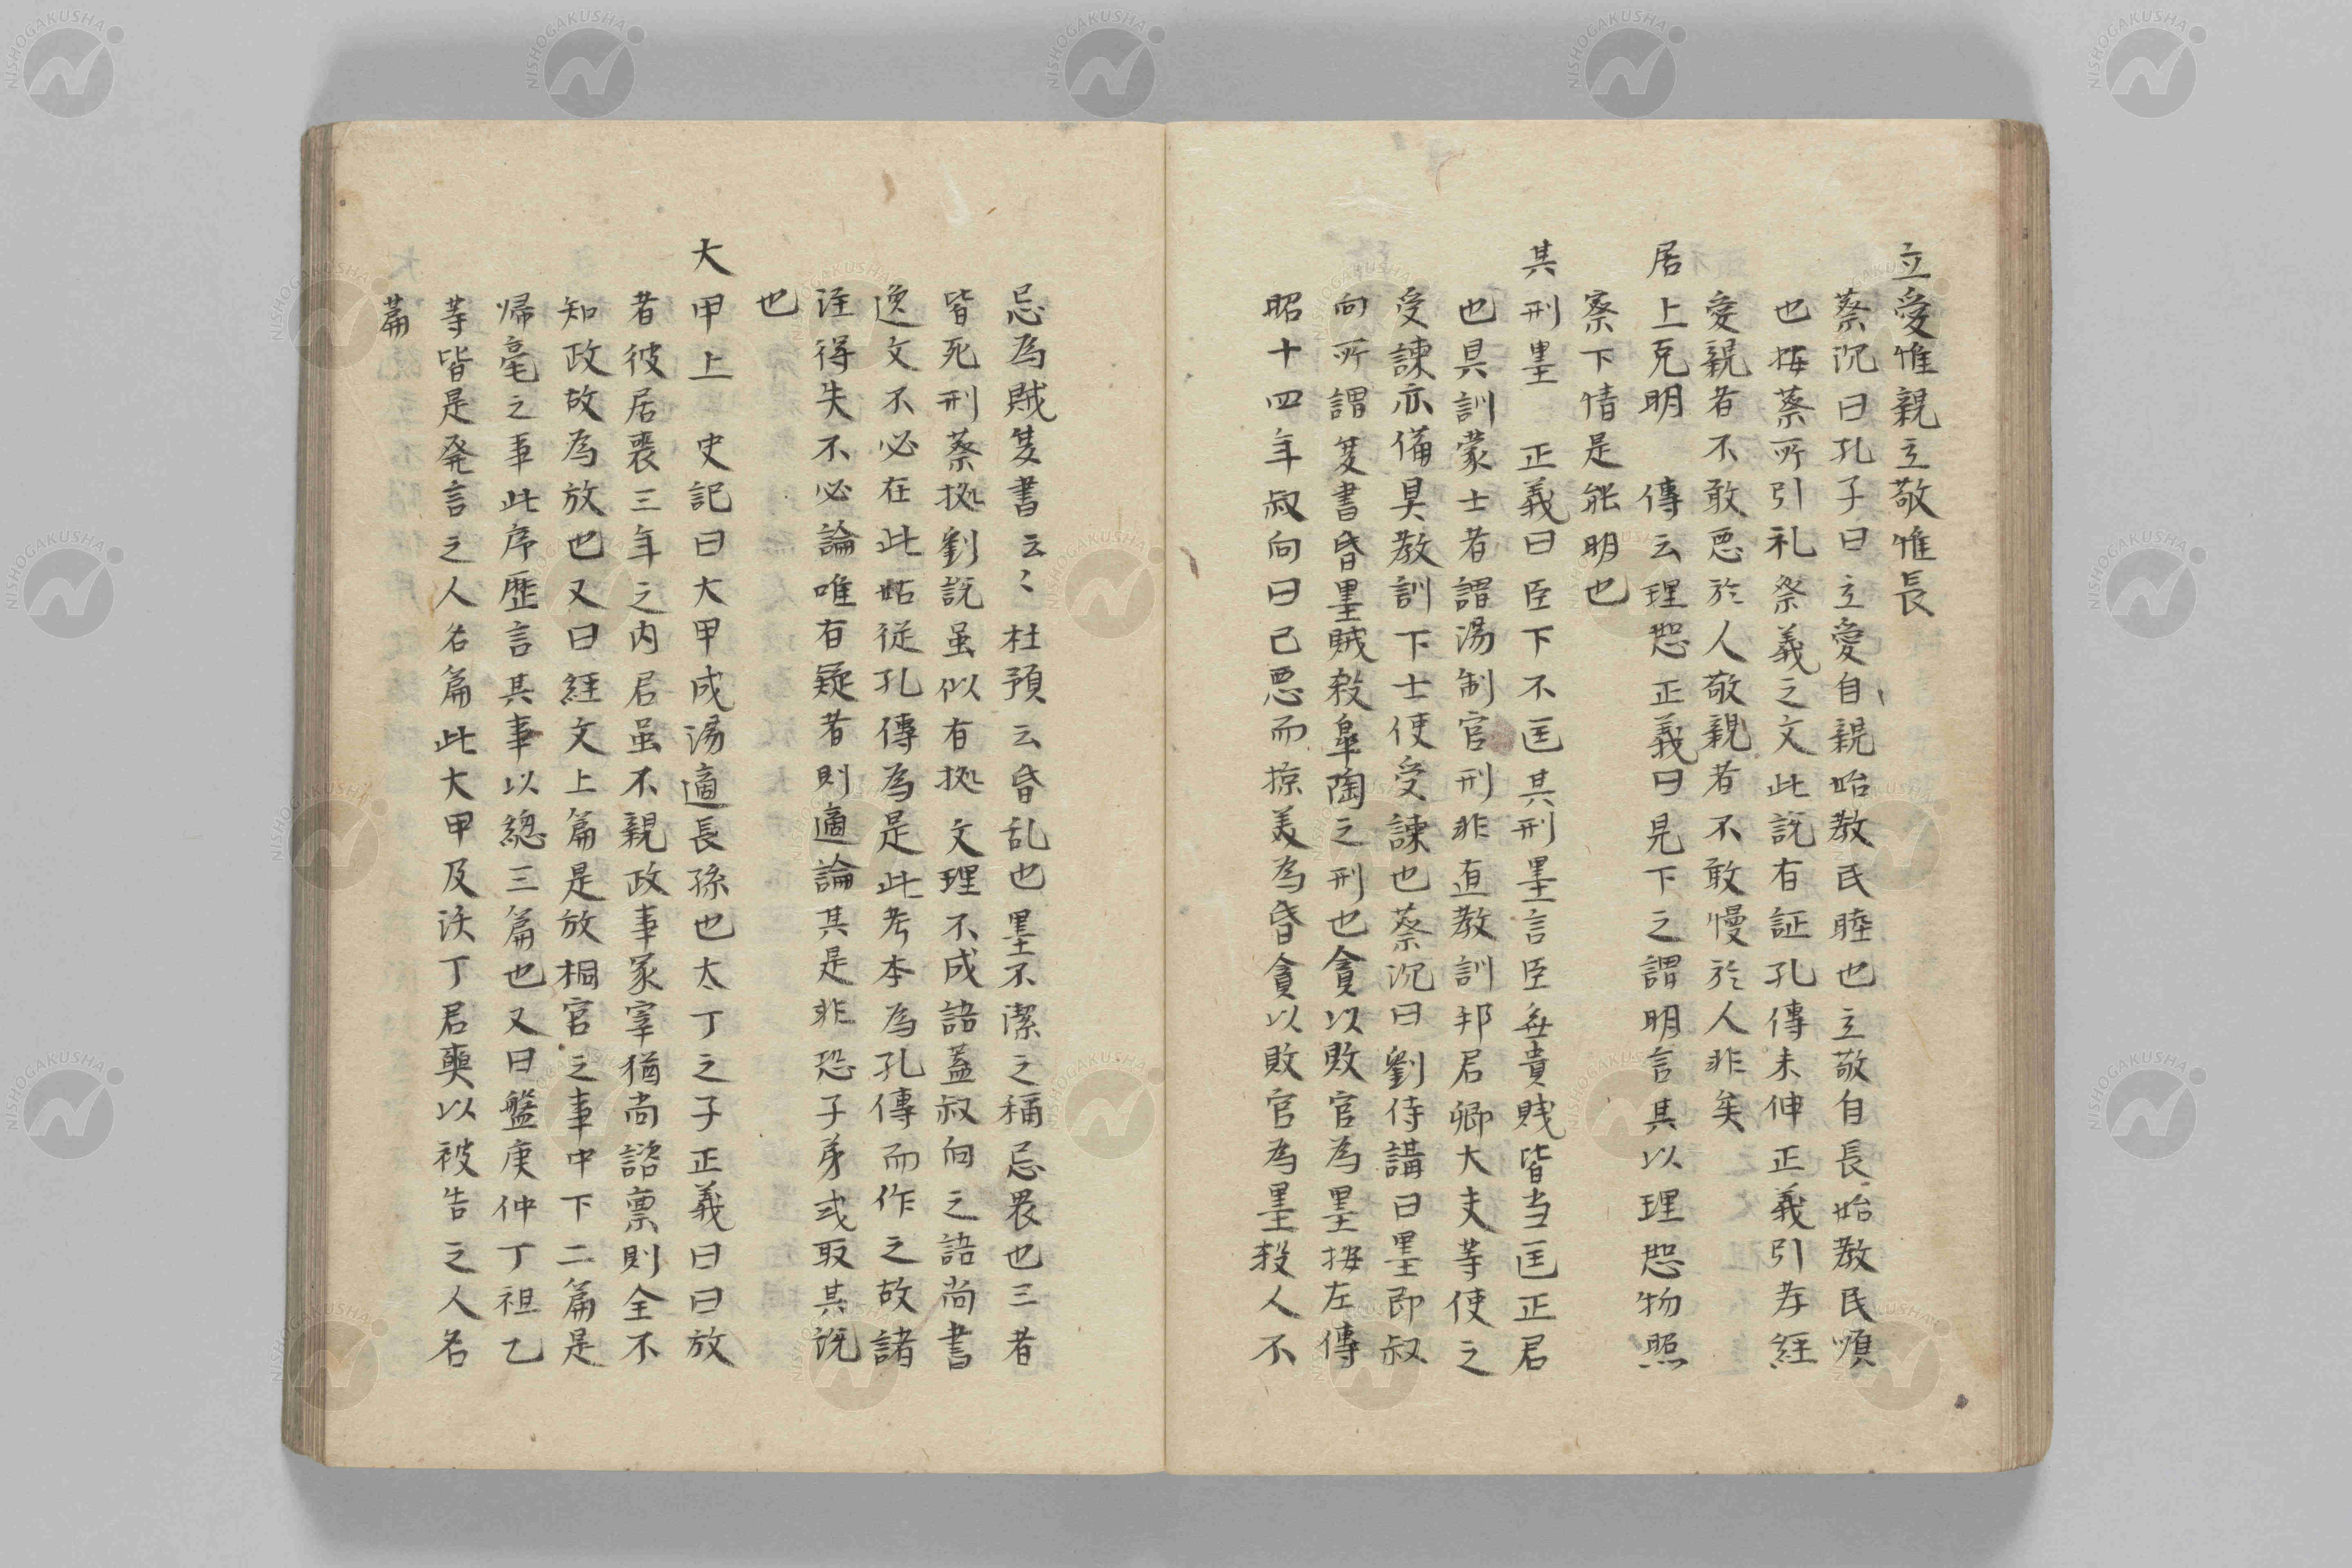 立愛惟親立敬惟長
蔡沉曰孔子曰立愛自親始教民睦也立敬自長始教民順
也按蔡所引礼祭義之文此説有証孔傳未伸正義引孝経
愛親者不敢悪於人敬親者不敢慢於人非矣
居上克明　傳云理恕正義曰見下之謂明言其以理恕物照
察下情是能明也
其刑墨　正義曰臣下不匡其刑墨言臣無貴賎皆当匡正君
也具訓蒙士者謂湯制官刑非直教訓邦君卿大夫等使之
受諫亦備具教訓下士使受諫也蔡沉曰劉侍講曰墨即叔
向所謂夏書昏墨賊殺皐陶之刑也貪以敗官為墨按左傳
昭十四年叔向曰己悪而掠美為昏貪以敗官為墨殺人不
忌為賊夏書云〻杜預云昏乱也墨不潔之稱忌畏也三者
皆死刑蔡拠劉説虽似有拠文理不成語蓋叔向之語尚書
逸文不必在此姑従孔傳為是此考本為孔傳而作之故諸
注得失不必論唯有疑者則適論其是非恐子弟或取其説
也
大甲上　史記曰大甲成湯適長孫也太丁之子正義曰曰放
者彼居喪三年之内君虽不親政事冢宰猶尚諮禀則全不
知政故為放也又曰経文上篇是放桐宮之事中下二篇是
帰亳之事此序歴言其事以總三篇也又曰盤庚仲丁祖乙
等皆是発言之人名篇此大甲及沃丁君奭以被告之人名
篇
NISHOGAKUSHA